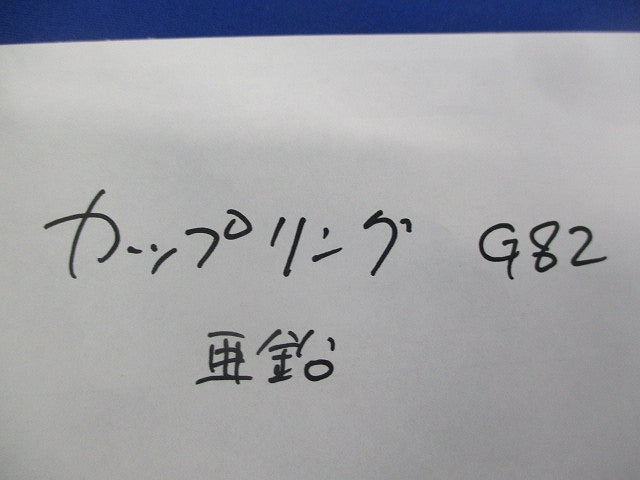 カップリング G82
亜鉛